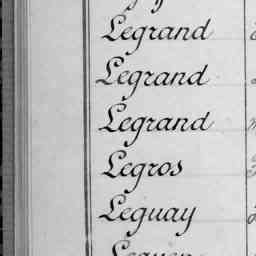 Legrand
Legrand
Legrand
Legros
Leguay